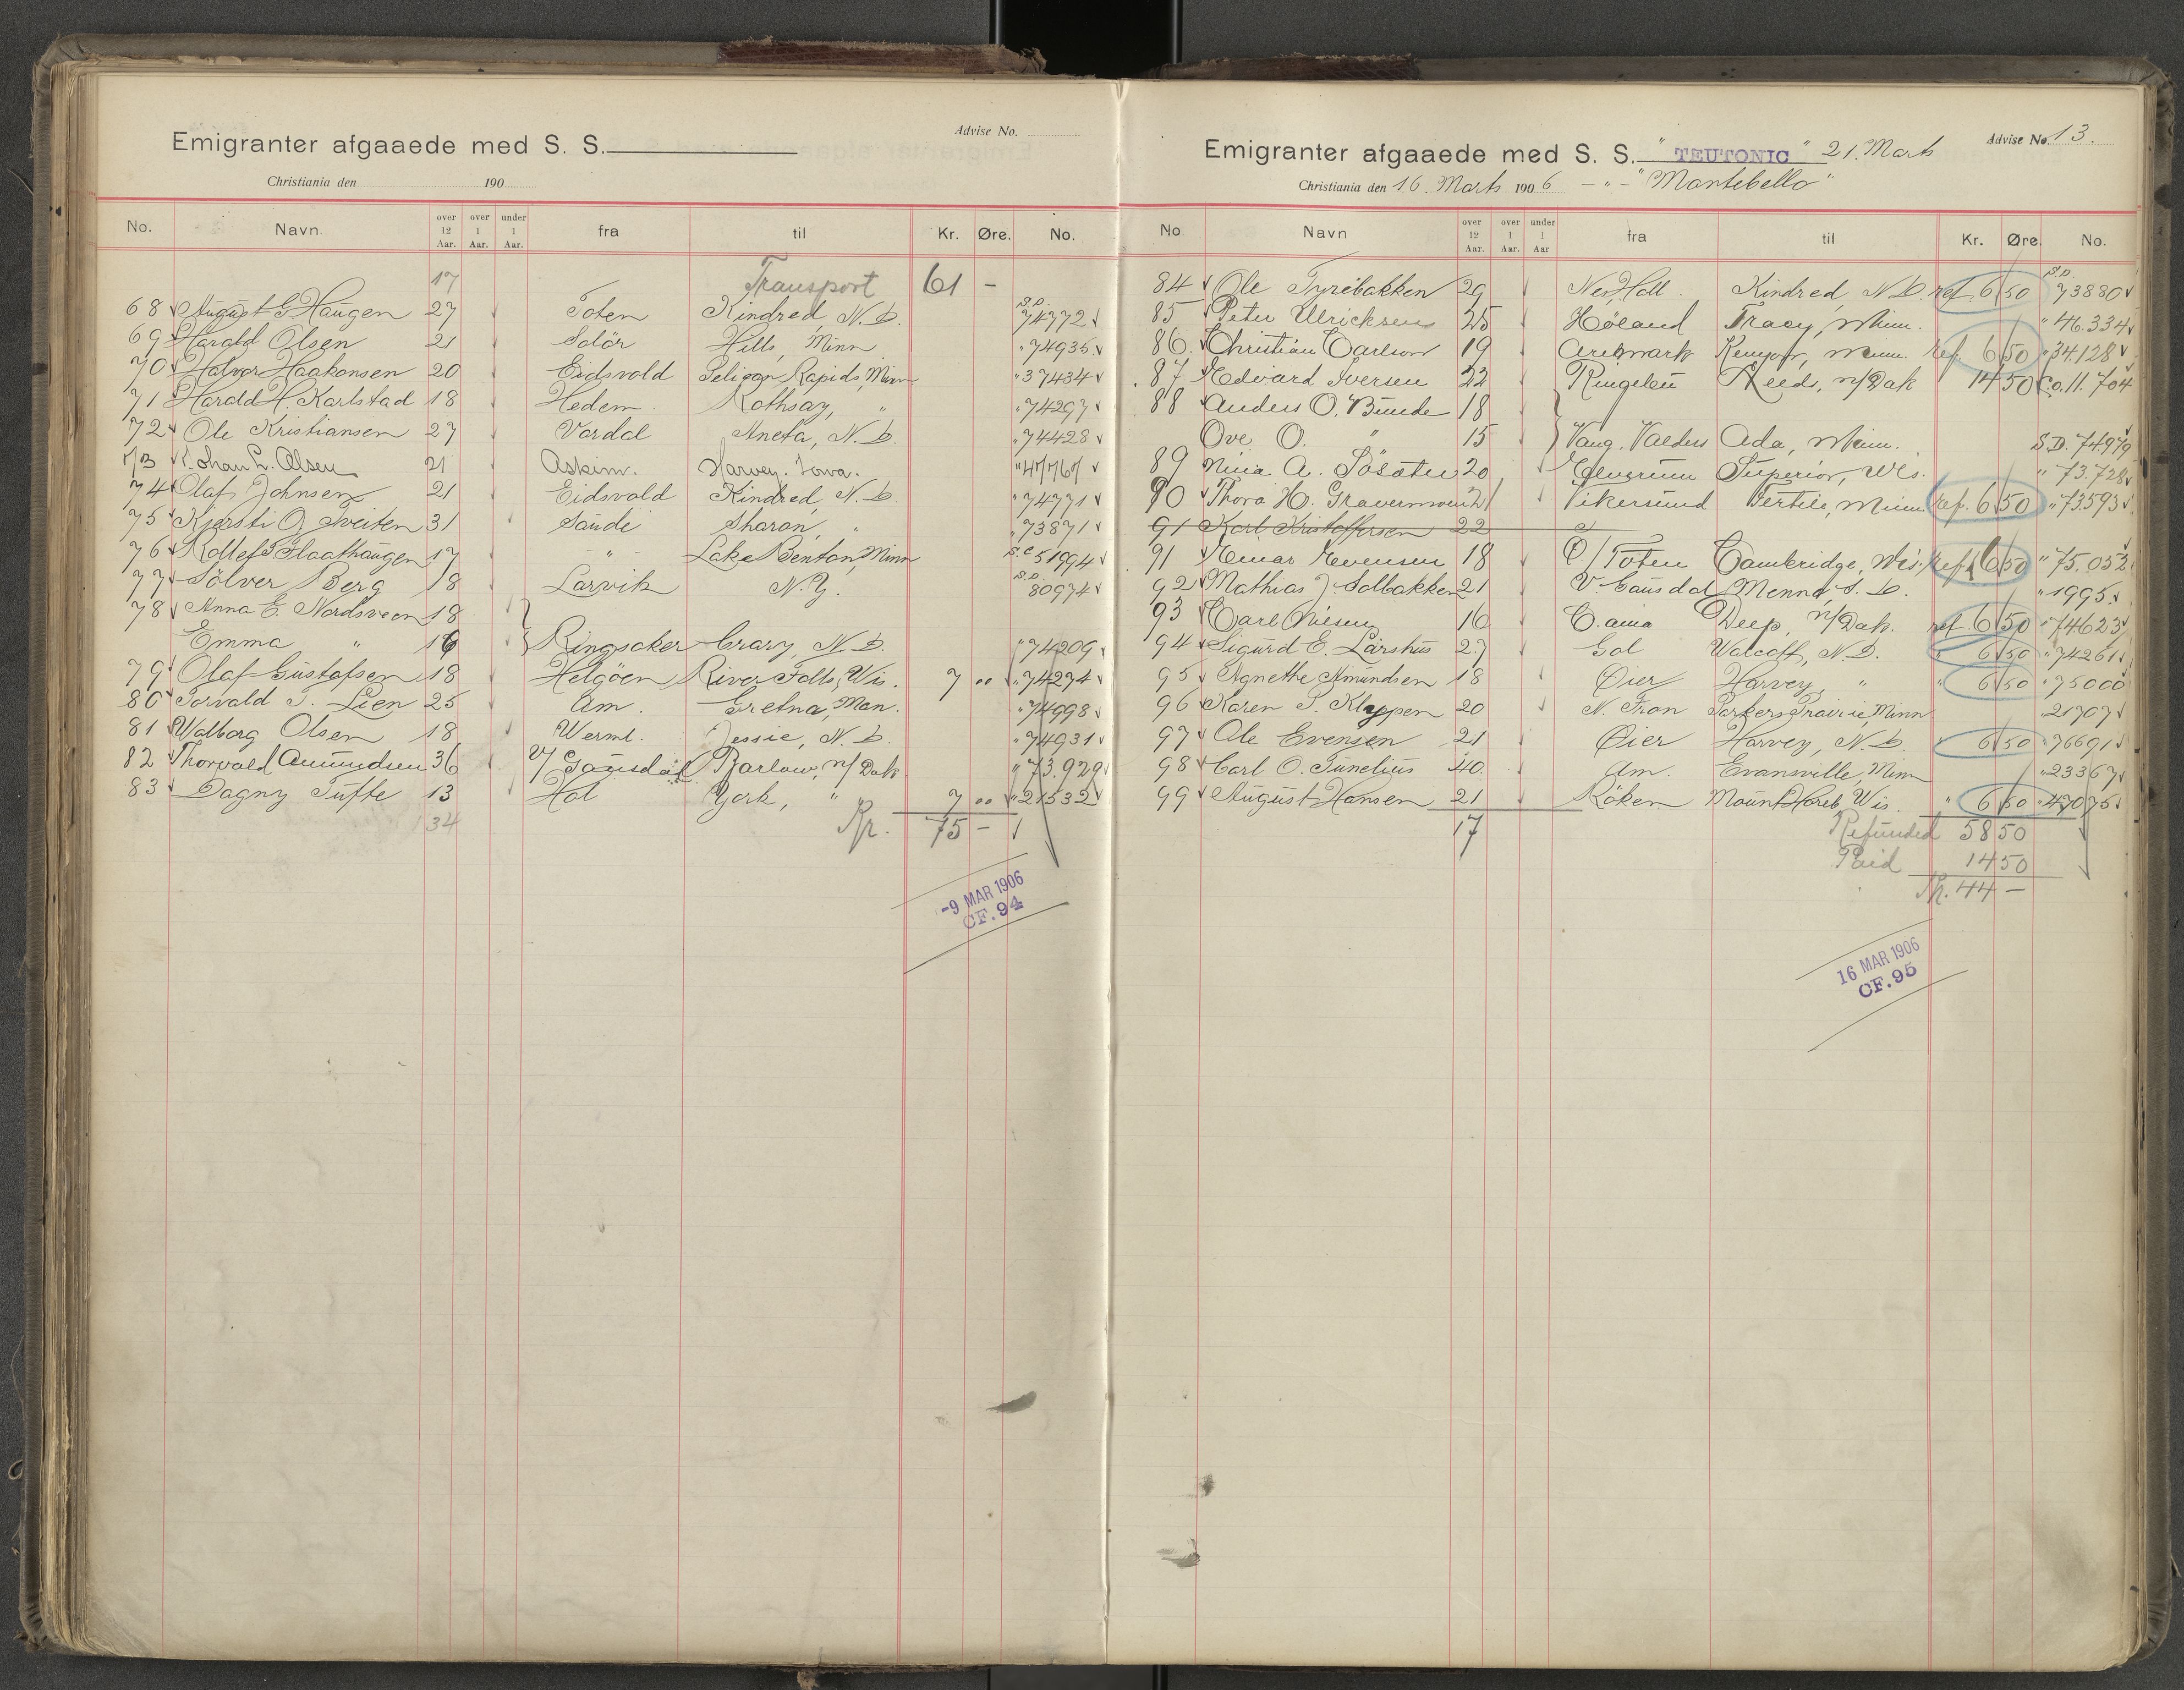 Advise No.
Emigranter afgaaede med S. S.
Christiania den 190
No. Navn. over 12 Aar. over 1 Aar. under 1 Aar. fra til Kr. Øre. No.
17 Transport 61 -
68 August G Haugen 27 Toten Kindred N. D. S.D. 74772
69 Harald Olsen 21 Solör Hills, Minn " 74935
70 Halvor Haakonsen 20 Eidsvold Peligan Rapids, Minn " 37434
71 Harald H. Karlstad 18 Hedem. Rothsay, " " 74297
72 Ole Kristiansen 27 Vardal Aneta, N. D. " 74428
73 Johan L. Olsen 21 Askim. Harvey. Iowa. " 47767
74 Olaf Johnsen 21 Eidsvold Kindred, N. D. " 74771
75 Kjersti O. Tveiten 31 Sande Sharon, " " 73871
76 Rollef Flaathaugen 17 - " - Lake Benton, Minn S.C 51994
77 Sölver Berg 18 Larvik N. Y. S.D. 80974
78 Anna E. Nordsveen 18
Emma " 16 Ringsaker Crary, N. D. " 74209
79 Olaf Gustafsen 18 Helgöen River Falls, Wis. 7 " 74274
80 Torvald T. Lien 25 Am. Gretna, Man. " 74998
81 Walborg Olsen 18 Werml. Jessie, N. D. " 74931
82 Thorvald Amundsen 36 V/ Gausdal Barlow, N/Dak " 73.929
83 Dagny Tufte 13 Hol York, " 7 " 21532
34 Kr. 75 -
-9 MAR 1906
CF. 94
Advise No. 13.
Emigranter afgaaede med S. S. "TEUTONIC" 21. Marts
Christiania den 16. Marts 1906 - " - "Montebello"
No Navn over 12 Aar. over 1 Aar. under 1 Aar fra til Kr. Øre. No.
84 Ole Tyribakken 29 Nes, Hall. Kindred, N. D. ref. 6 50 S.D. 73880
85 Peter Ulricksen 25 Höland Tracy, Minn. " 46.334
86. Christian Carlson 19 Aremark Kenyon, Minn. ref. 6 50 " 34128
87 Edvard Iversen 22 Ringebu Leeds, N/Dak 14 50 Co. 11. 704
88 Anders O. Bunde 18
Ove O. " 15 Vang. Valders Ada, Minn. S.D. 74979
89 Nina A. 20 Elverum Superior, Wis. " 73.728
90 Thora H. Gravermoen 21 Vikersund Fertile, Minn ref. 6 50 " 73593
91 Karl Kristoffersen 22
91 Einar Evensen 18 Ø/Toten Cambridge, Wis. ref. 6 50 " 75.052
92 Mathias J. Solbakken 21 V. Gausdal Menno, S. D. " 1995
93 Carl Nilsen 16 Deep, N/Dak. ref. 6 50 " 74623
94 Sigurd E. Larshus 27 Gol Walcott, N. D. " 6 50 " 74261
95 Agnethe Amundsen 18 Øier Harvey, " " 6 50 " 75000
96 Karen P. Kleppen 20 N. Fron Parkers Prairie, Minn " 21707
97 Ole Evensen 21 Øier Harvey, N. D. " 6 50 " 76691
98 Carl O. Tunelius 40 Am. Evansville, Minn " 23367
99 August Hansen 21 Röken Mount Horeb, Wis " 6 50 " 47075
17 Refunded 58 50
Paid 14 50
Kr. 44 -
16 MAR 1906
CF. 95